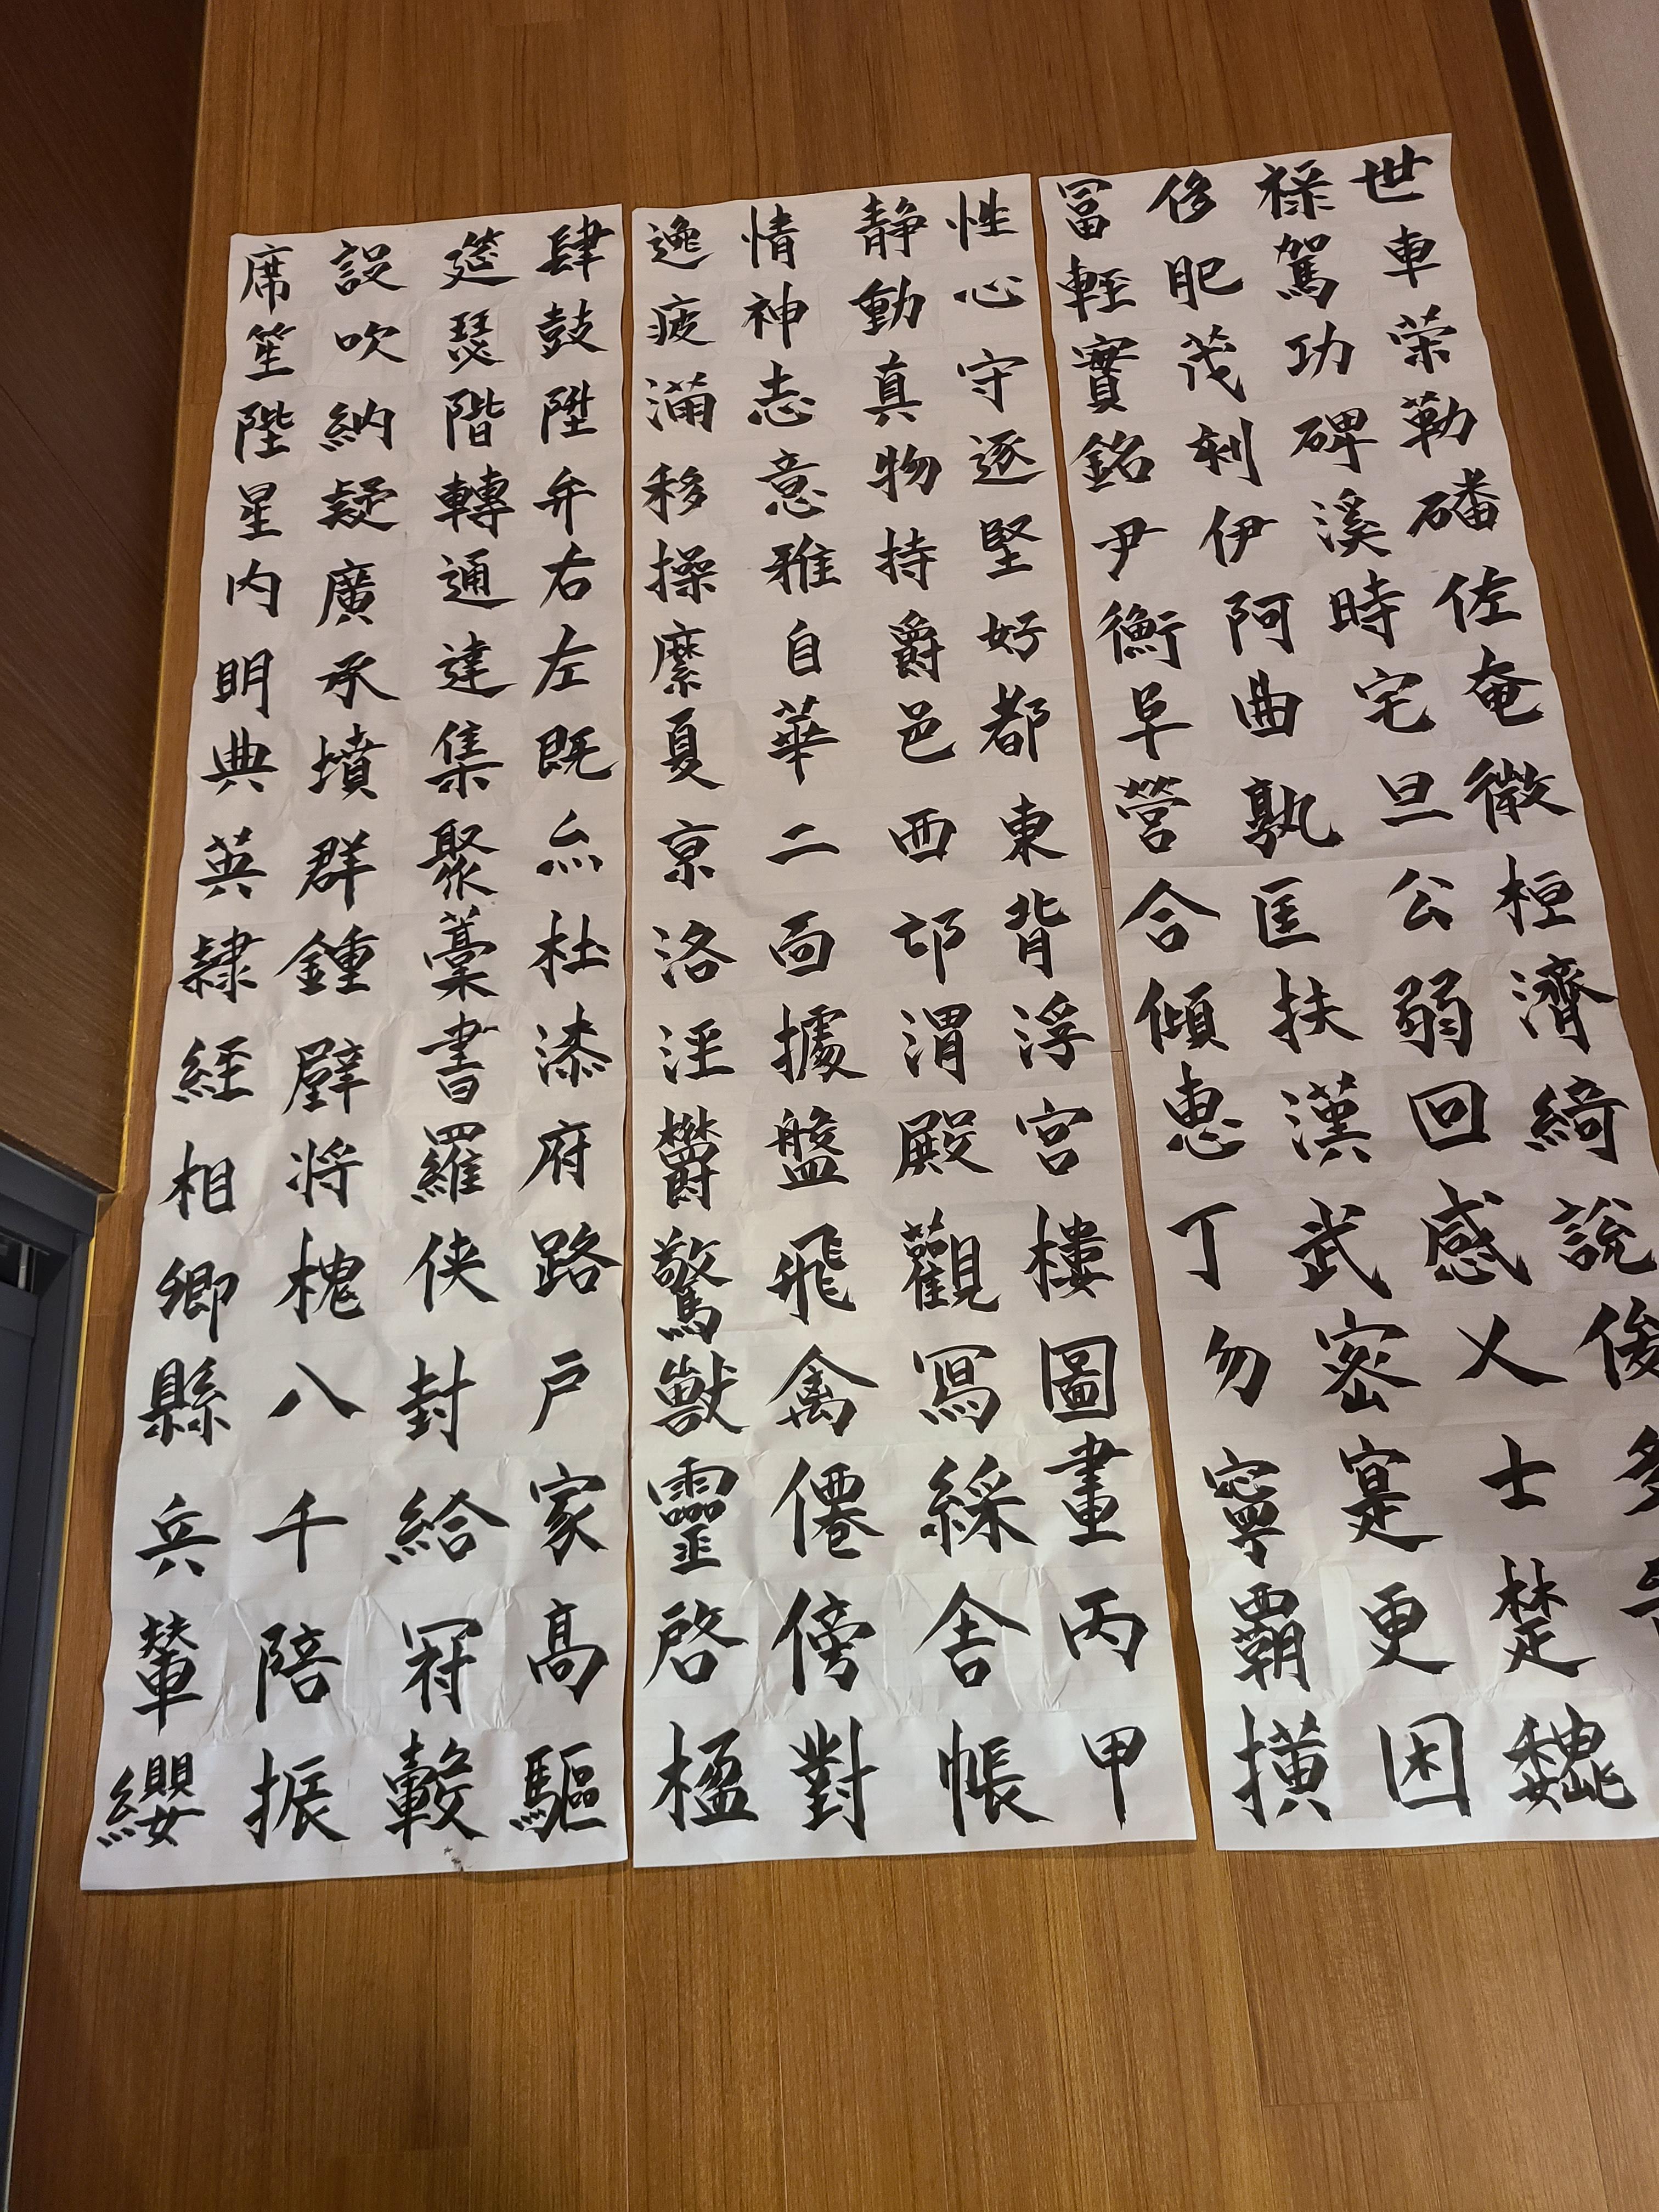 性静情逸
心動神疲
守真志滿
逐物意移
堅持雅操
好爵自縻
都邑華夏
東西二京
背邙面洛
浮渭據涇
宮殿盤欝
樓觀飛驚
圖寫禽獸
畫綵僊靈
丙舍傍啓
甲帳對楹
肆筵設席
鼓瑟吹笙
陞階納陛
弁轉疑星
右通廣内
左達承明
既集墳典
亦聚群英
杜藁鍾隸
漆書壁經
府羅将相
路俠槐卿
户封八縣
家給千兵
高冠陪輦
驅轂振纓
世禄侈冨
車駕肥輕
荣功茂實
勒碑刻銘
磻溪伊尹
佐時阿衡
奄宅曲阜
微旦孰營
桓公匡合
濟弱扶傾
綺回漢恵
說感武丁
俊乂密勿
多士寔寧
楚更覇
魏困橫